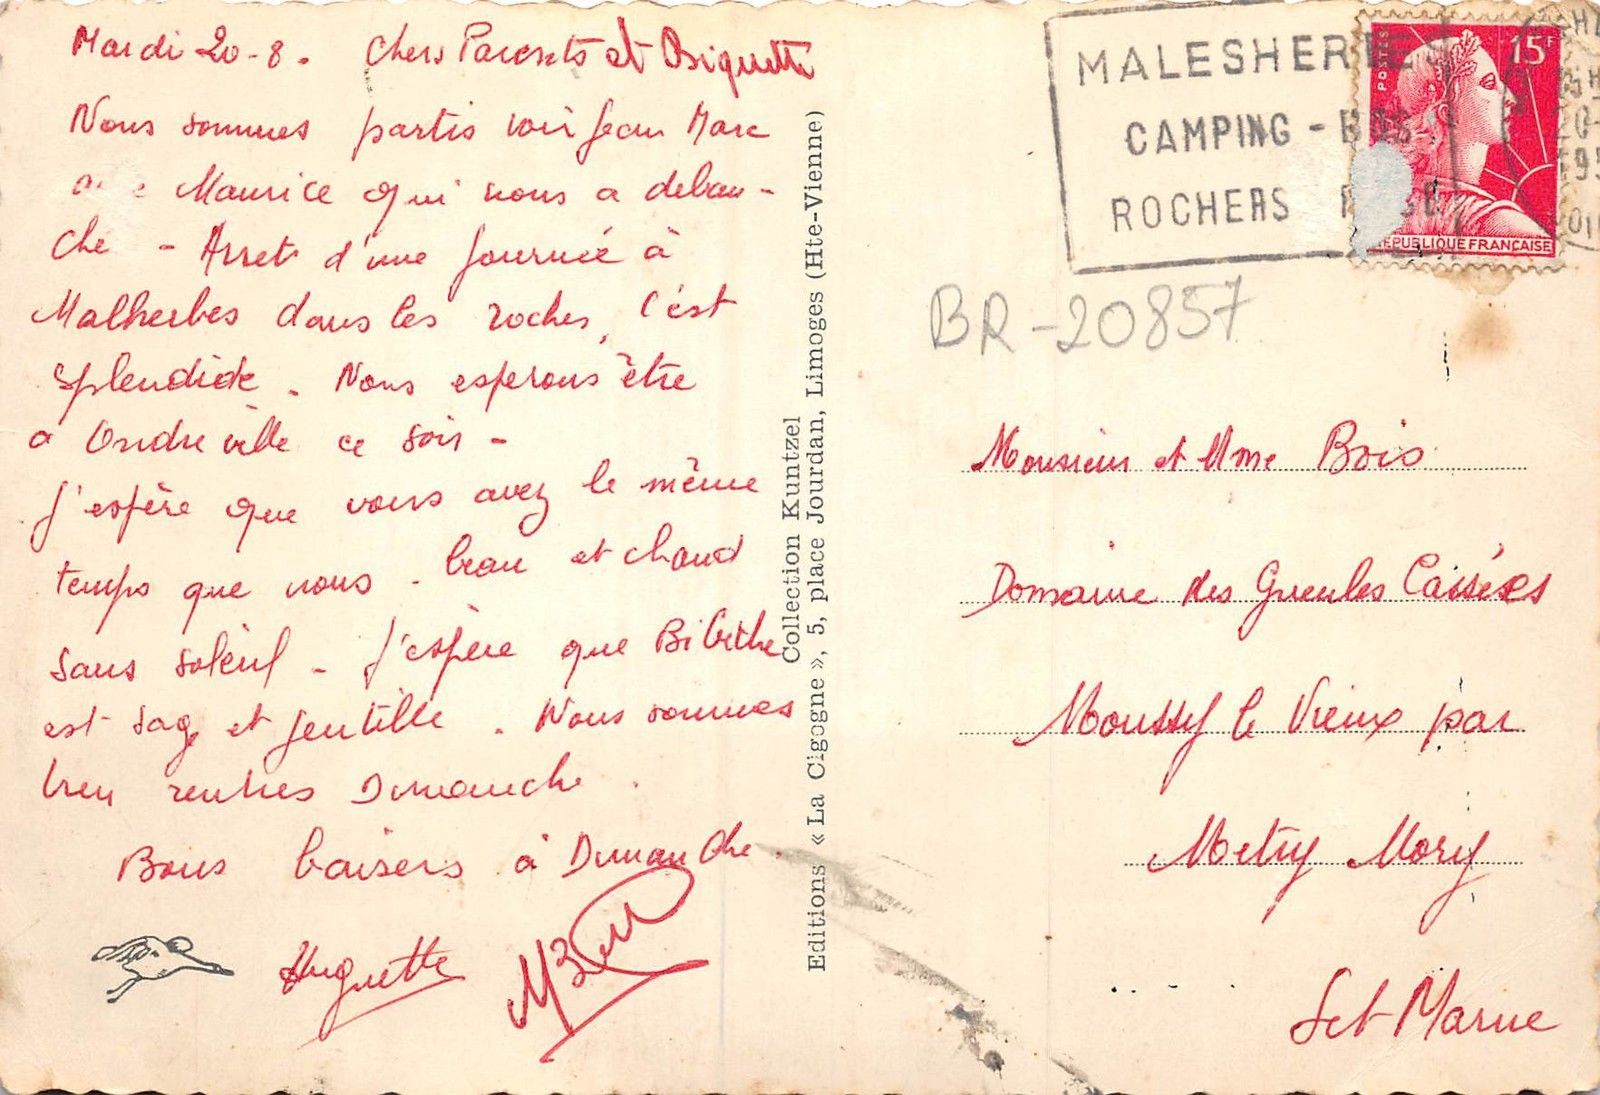 Mardi 20-8. Chers Parents et Biquette
Nous sommes partis voir Jean Marc
Maurice qui nous a debau-
che - Arret d'une journée à
Malherbes dans les roches, c'est
splendide. Nous esperons être
a Ondreville ce soir -
J'espère que vous avez le même
temps que nous. beau et chaud
sans soleil - J'espère que Bibiche
est sage et gentille. Nous sommes
bien rentres Dimanche.
Bons baisers à Dimanche.
Huguette
Collection Kuntzel
Editions « La Cigogne », 5, place Jourdan, Limoges (Hte-Vienne)
MALESHERBES
CAMPING - BOIS
ROCHERS
15F
POSTES
REPUBLIQUE FRANÇAISE
BR-20857
Monsieur et Mme Bois
Domaine des Gueules Cassées
Moussy le Vieux par
Mitry Mory
Set Marne